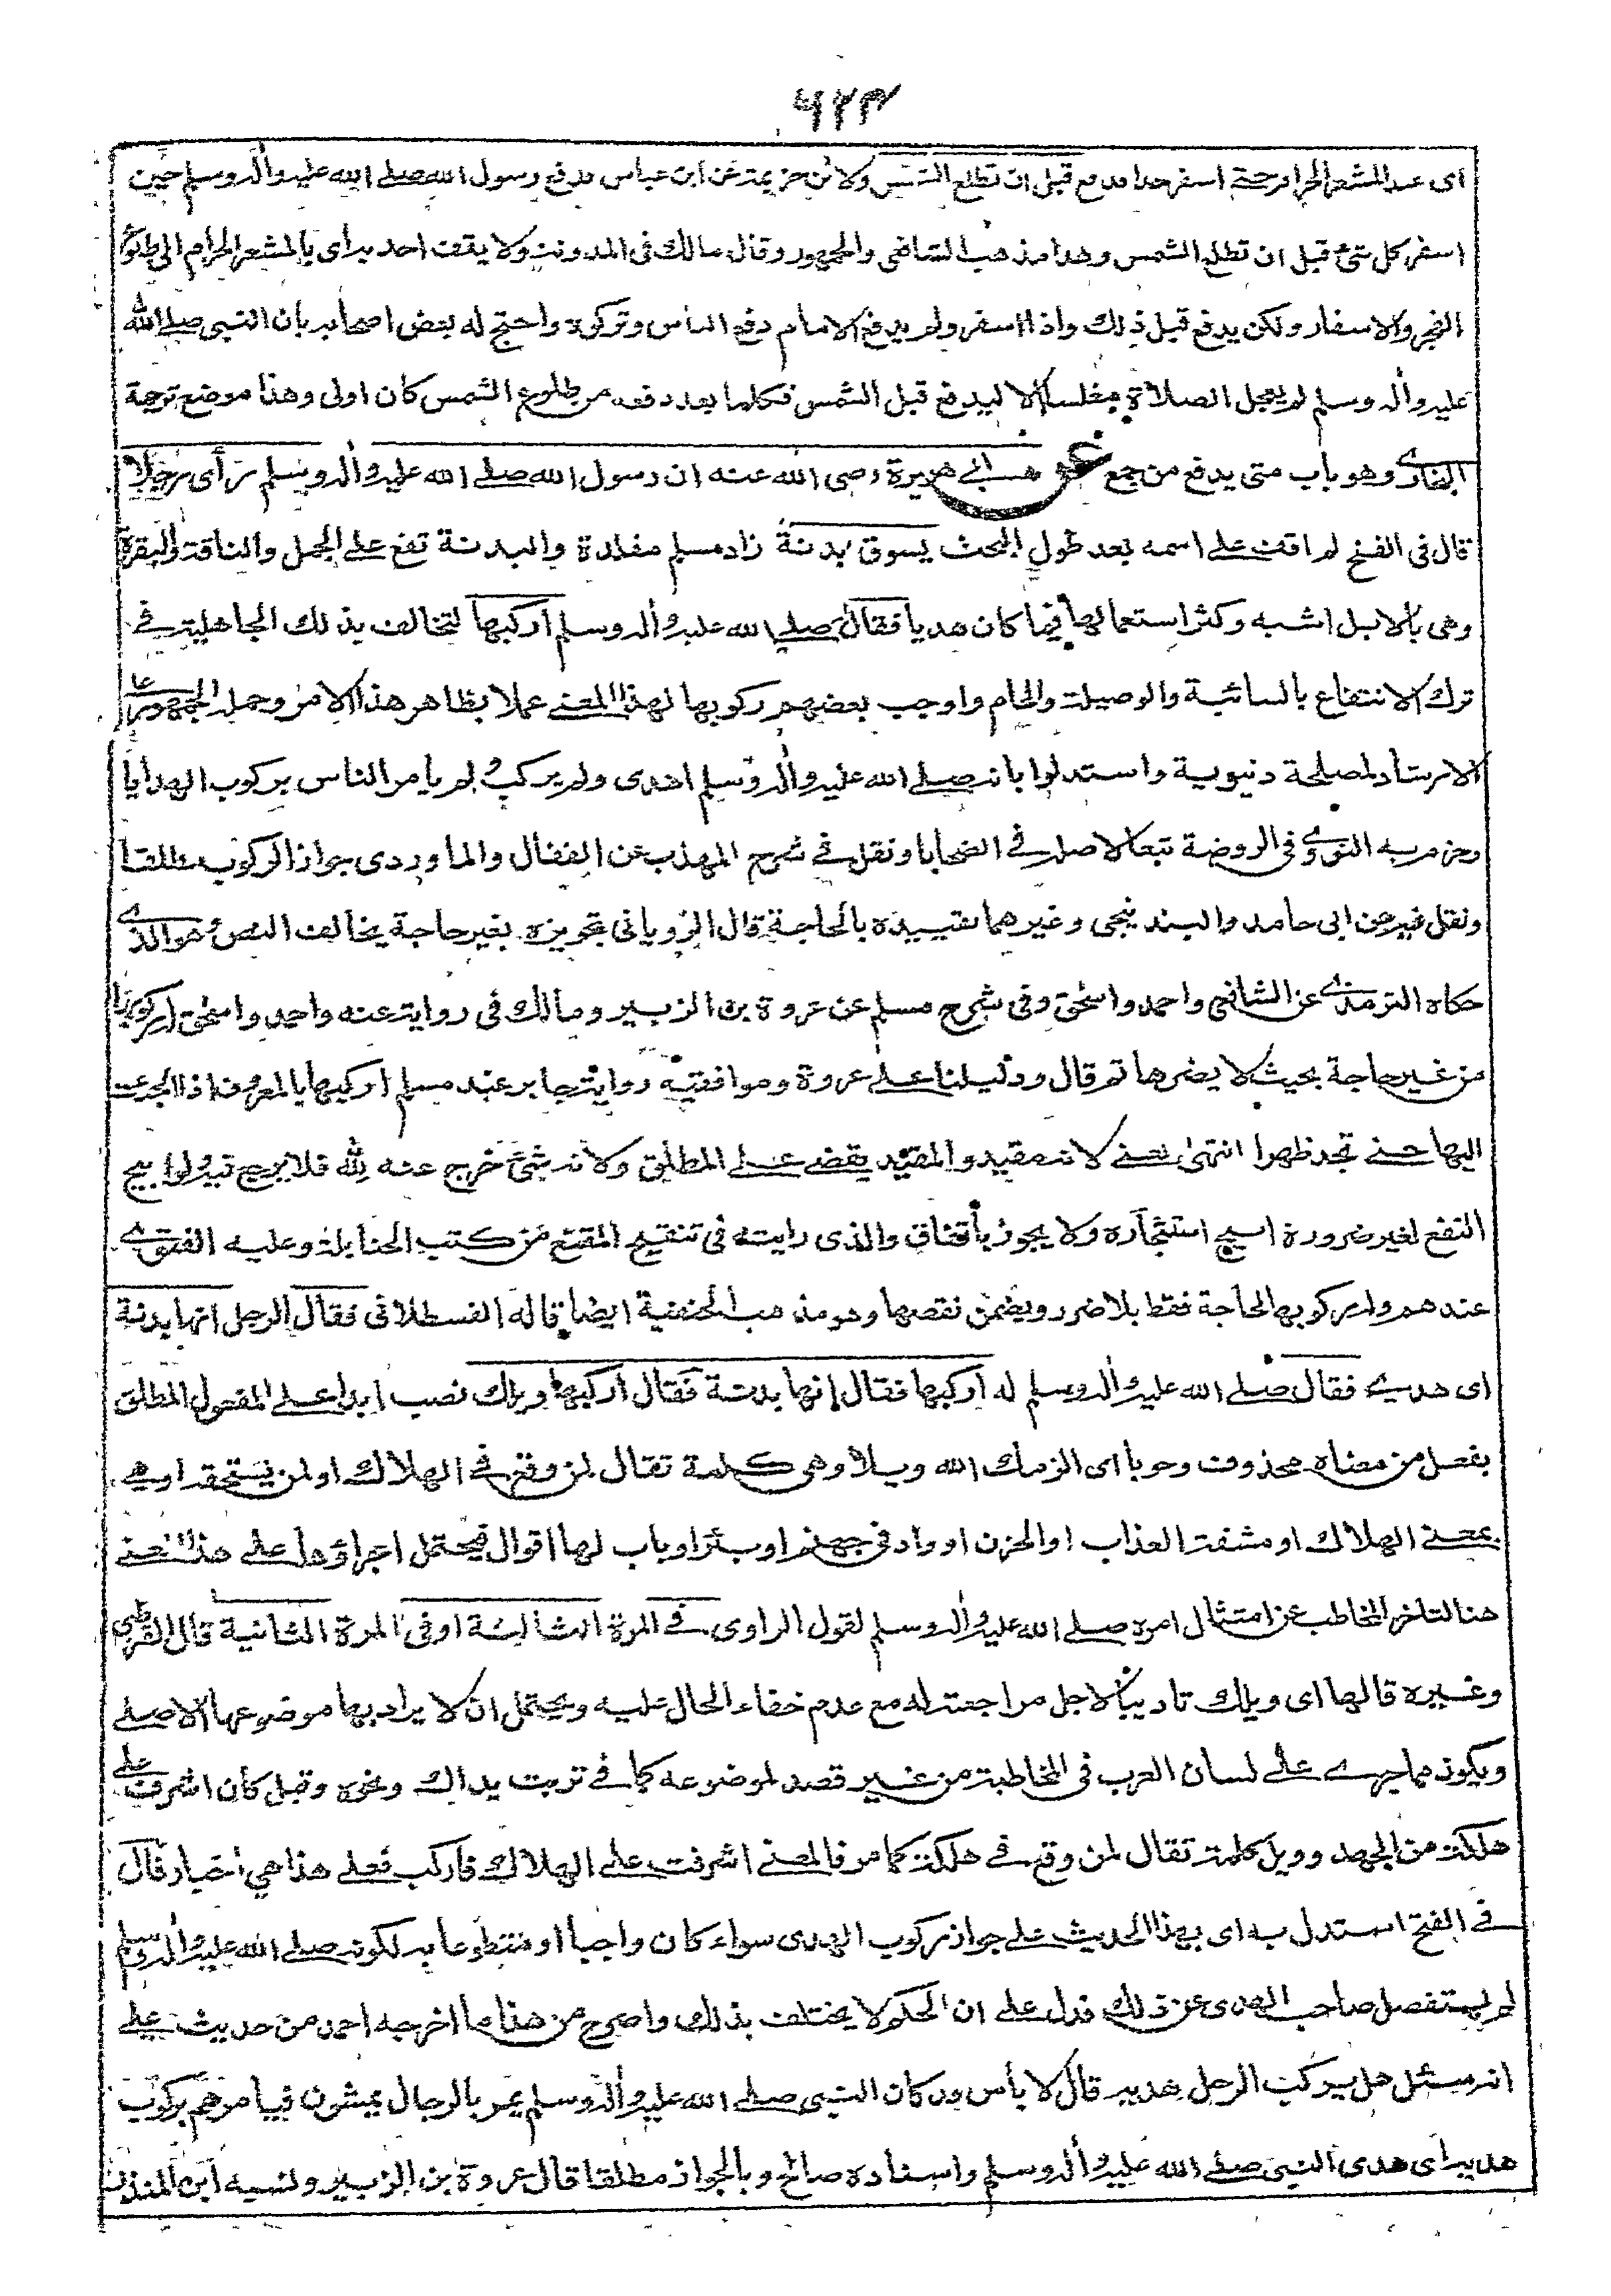 ٦٢٣
اى عند المشعر الحرام حتى اسفر جدا فدفع قبل ان تطلع الشمس ولابن خزيمة عن ابن عباس فدفع رسول الله صلى الله عليه وأله وسلم حين
اسفر كل شئ قبل ان تطلع الشمس وهذا مذهب الشافعى والجمهور وقال مالك فى المدونة ولا يقف احد به اى بالمشعر الحرام الى طلوع
الفجر والاسفار ولكن يدفع قبل ذلك واذا اسفر ولم يدفع الامام دفع الناس وتركوه واحتج له بعض اصحابه بان النبى صلى الله
عليه وأله وسلم لم يعجل الصلاة مغلسا الا ليدفع قبل الشمس فكلما بعد دفعه من طلوع الشمس كان اولى وهذا موضع ترجمة
البخارى وهو باب متى يدفع من جمع عن ابى هريرة رضى الله عنه ان رسول الله صلى الله عليه وأله وسلم رأى رجلا
قال فى الفتح لم اقف على اسمه بعد طول البحث يسوق بدنة زاد مسلم مقلدة والبدنة تقع على الجمل والناقة والبقرة
وهى بالابل اشبه وكثر استعمالها فيما كان هديا فقال صلى الله عليه وأله وسلم اركبها لتخالف بذلك الجاهلية فى
ترك الانتفاع بالسائبة والوصيلة والحام واوجب بعضهم ركوبها لهذا المعنى عملا بظاهر هذا الامر وحمله الجمهور على
الارشاد لمصلحة دنيوية واستدلوا بانه صلى الله عليه وأله وسلم اهدى ولم يركب ولم يامر الناس بركوب الهدايا
وجزم به النووى فى الروضة تبعا لاصله فى الضحايا ونقل فى شرح المهذب عن القفال والماوردى جواز الركوب مطلقا
ونقل فيه عن ابى حامد والبندنيجى وغيرهما تقييده بالحاجة قال الرويانى تجويزه بغير حاجة يخالف النص وهو الذى
حكاه الترمذى عن الشافعى واحمد واسحق وفى شرح مسلم عن عروة بن الزبير ومالك فى رواية عنه واحمد واسحق له ركوبها
من غير حاجة بحيث لا يضرها ثم قال ودليلنا على عروة وموافقيه رواية جابر عند مسلم اركبها بالمعروف اذا الجئت
اليها حتى تجد ظهرا انتهى يعنى لانه مقيد والمقيد يقضى على المطلق ولانه شئ خرج عنه لله فلا يرجع فيه ولو ابيح
النفع لغير ضرورة ابيح استئجاره ولا يجوز باتفاق والذى رايته فى تنقيح المقنع من كتب الحنابلة وعليه الفتوى
عندهم وله ركوبها لحاجة فقط بلا ضرر ويضمن نقصها وهو مذهب الحنفية ايضا قاله القسطلانى فقال الرجل انها بدنة
اى هدى فقال صلى الله عليه وأله وسلم له اركبها فقال إنها بدنة فقال اركبها ويلك نصب ابدا على المفعول المطلق
بفعل من معناه محذوف وجوبا اى الزمك الله ويلا وهى كلمة تقال لمن وقع فى الهلاك او لمن يستحقه او هى
بمعنى الهلاك او مشقة العذاب او الحزن او واد فى جهنم او بئر او باب لها اقوال فيحتمل اجراؤها على هذا المعنى
هنا لتاخر المخاطب عن امتثال امره صلى الله عليه وأله وسلم لقول الراوى فى المرة الثالثة او فى المرة الثانية قال القرطبى
وغيره قالها اى ويلك تاديبا لاجل مراجعته له مع عدم خفاء الحال عليه ويحتمل ان لا يراد بها موضوعها الاصلى
ويكون مما جرى على لسان العرب فى المخاطبة من غير قصد لموضوعه كما فى تربت يداك ونحوه وقيل كان اشرف على
هلكة من الجهد وويل كلمة تقال لمن وقع فى هلكة كما مر فالمعنى اشرفت على الهلاك فاركب فعلى هذا هى اخبار قال
فى الفتح استدل به اى بهذا الحديث على جواز ركوب الهدى سواء كان واجبا او متطوعا به لكونه صلى الله عليه وأله وسلم
لم يستفصل صاحب الهدى عن ذلك فدل على ان الحكم لا يختلف بذلك واصرح من هذا ما اخرجه احمد من حديث على
انه سئل هل يركب الرجل هديه قال لا بأس قد كان النبى صلى الله عليه وأله وسلم يمر بالرجال يمشون فيامرهم بركوب
هديه اى هدى النبى صلى الله عليه وأله وسلم واسناده صالح وبالجواز مطلقا قال عروة بن الزبير ونسبه ابن المنذر